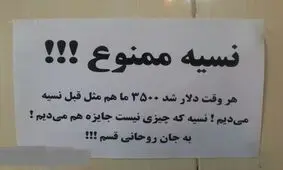 نسیه ممنوع !!!
هر وقت دلار شد ۳۵۰۰ ما هم مثل قبل نسیه
می‌دیم ! نسیه که چیزی نیست جایزه هم می‌دیم !
به جان روحانی قسم !!!